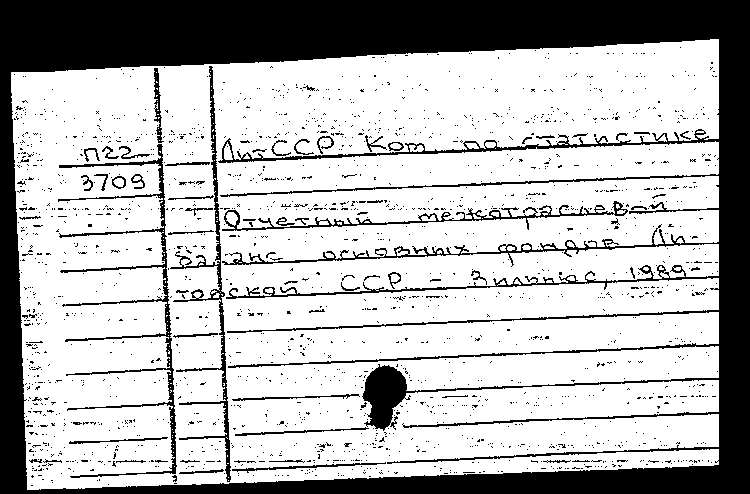 П22-
3709
ЛитССР Ком. по статистике
Отчетный межотраслевой
баланс основных фондов Ли-
товской ССР - Вильнюс, 1989-